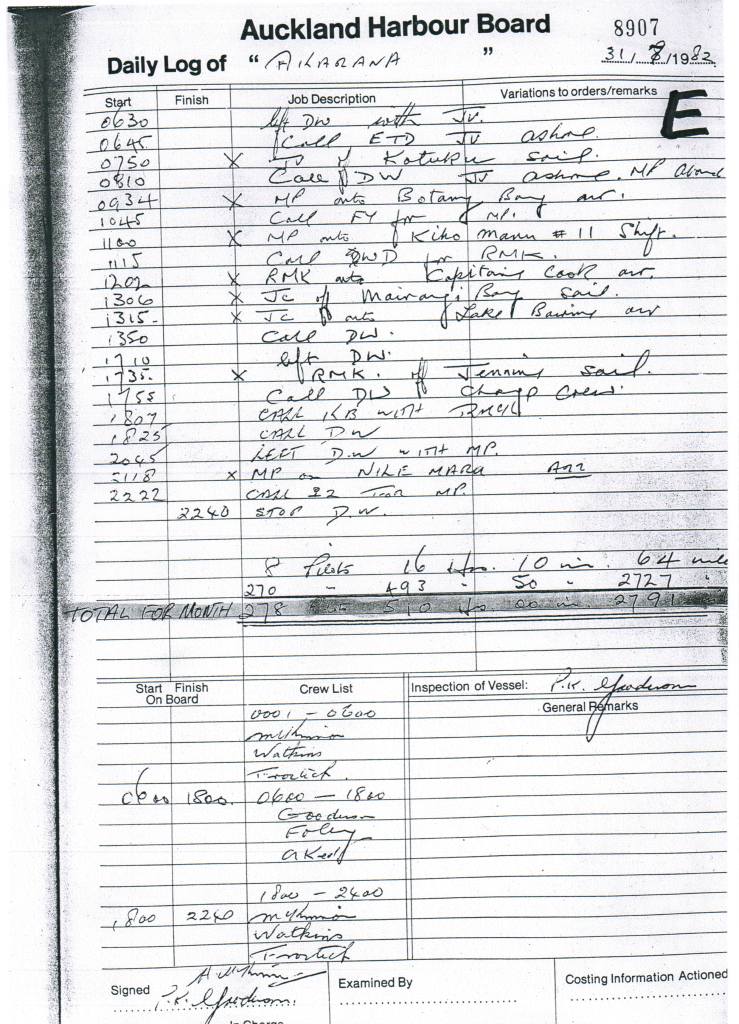 Auckland Harbour Board
8907
Daily Log of "AKARANA"
31/8/1982
Start Finish Job Description Variations to orders/remarks
E
0630 left DW with JV.
0645 Call ETD JV ashore.
0750 X of Kotuku sail.
0810 Call DW JV ashore. MP aboard
0934 X MP onto Botany Bay arr.
1045 Call FY for MP.
1100 X MP onto Kiho maru #11 Shift.
1115 Call for RMK.
1202 X RMK onto Capitaine Cook arr.
1306 X JC off Mairangi Bay sail.
1315 X JC onto Lake arr
1350 Call DW.
1710 left DW.
1735. X RMK. off Jenning sail.
1755 Call DW Change Crew.
1807 CALL KB WITH
1825 CALL DW
2045 LEFT D.W WITH MP.
2118 X MP on NILE MARU ARR
2222 CALL MP.
2240 STOP D.W.
8 Pilots 16 hrs. 10 min. 64 mile
270 " 493 " 50 " 2727 "
TOTAL FOR MONTH 278 510 hrs. 00 min. 2791
Start Finish Crew List Inspection of Vessel: P.K. Gooderson
On Board General Remarks
0001 - 0600
McKinnon
Watkins
0600 1800. 0600 - 1800
Gooderson
Foley
1800 - 2400
1800 2240 McKinnon
Watkins
Signed P.K. Gooderson.
Examined By
Costing Information Actioned
In Charge